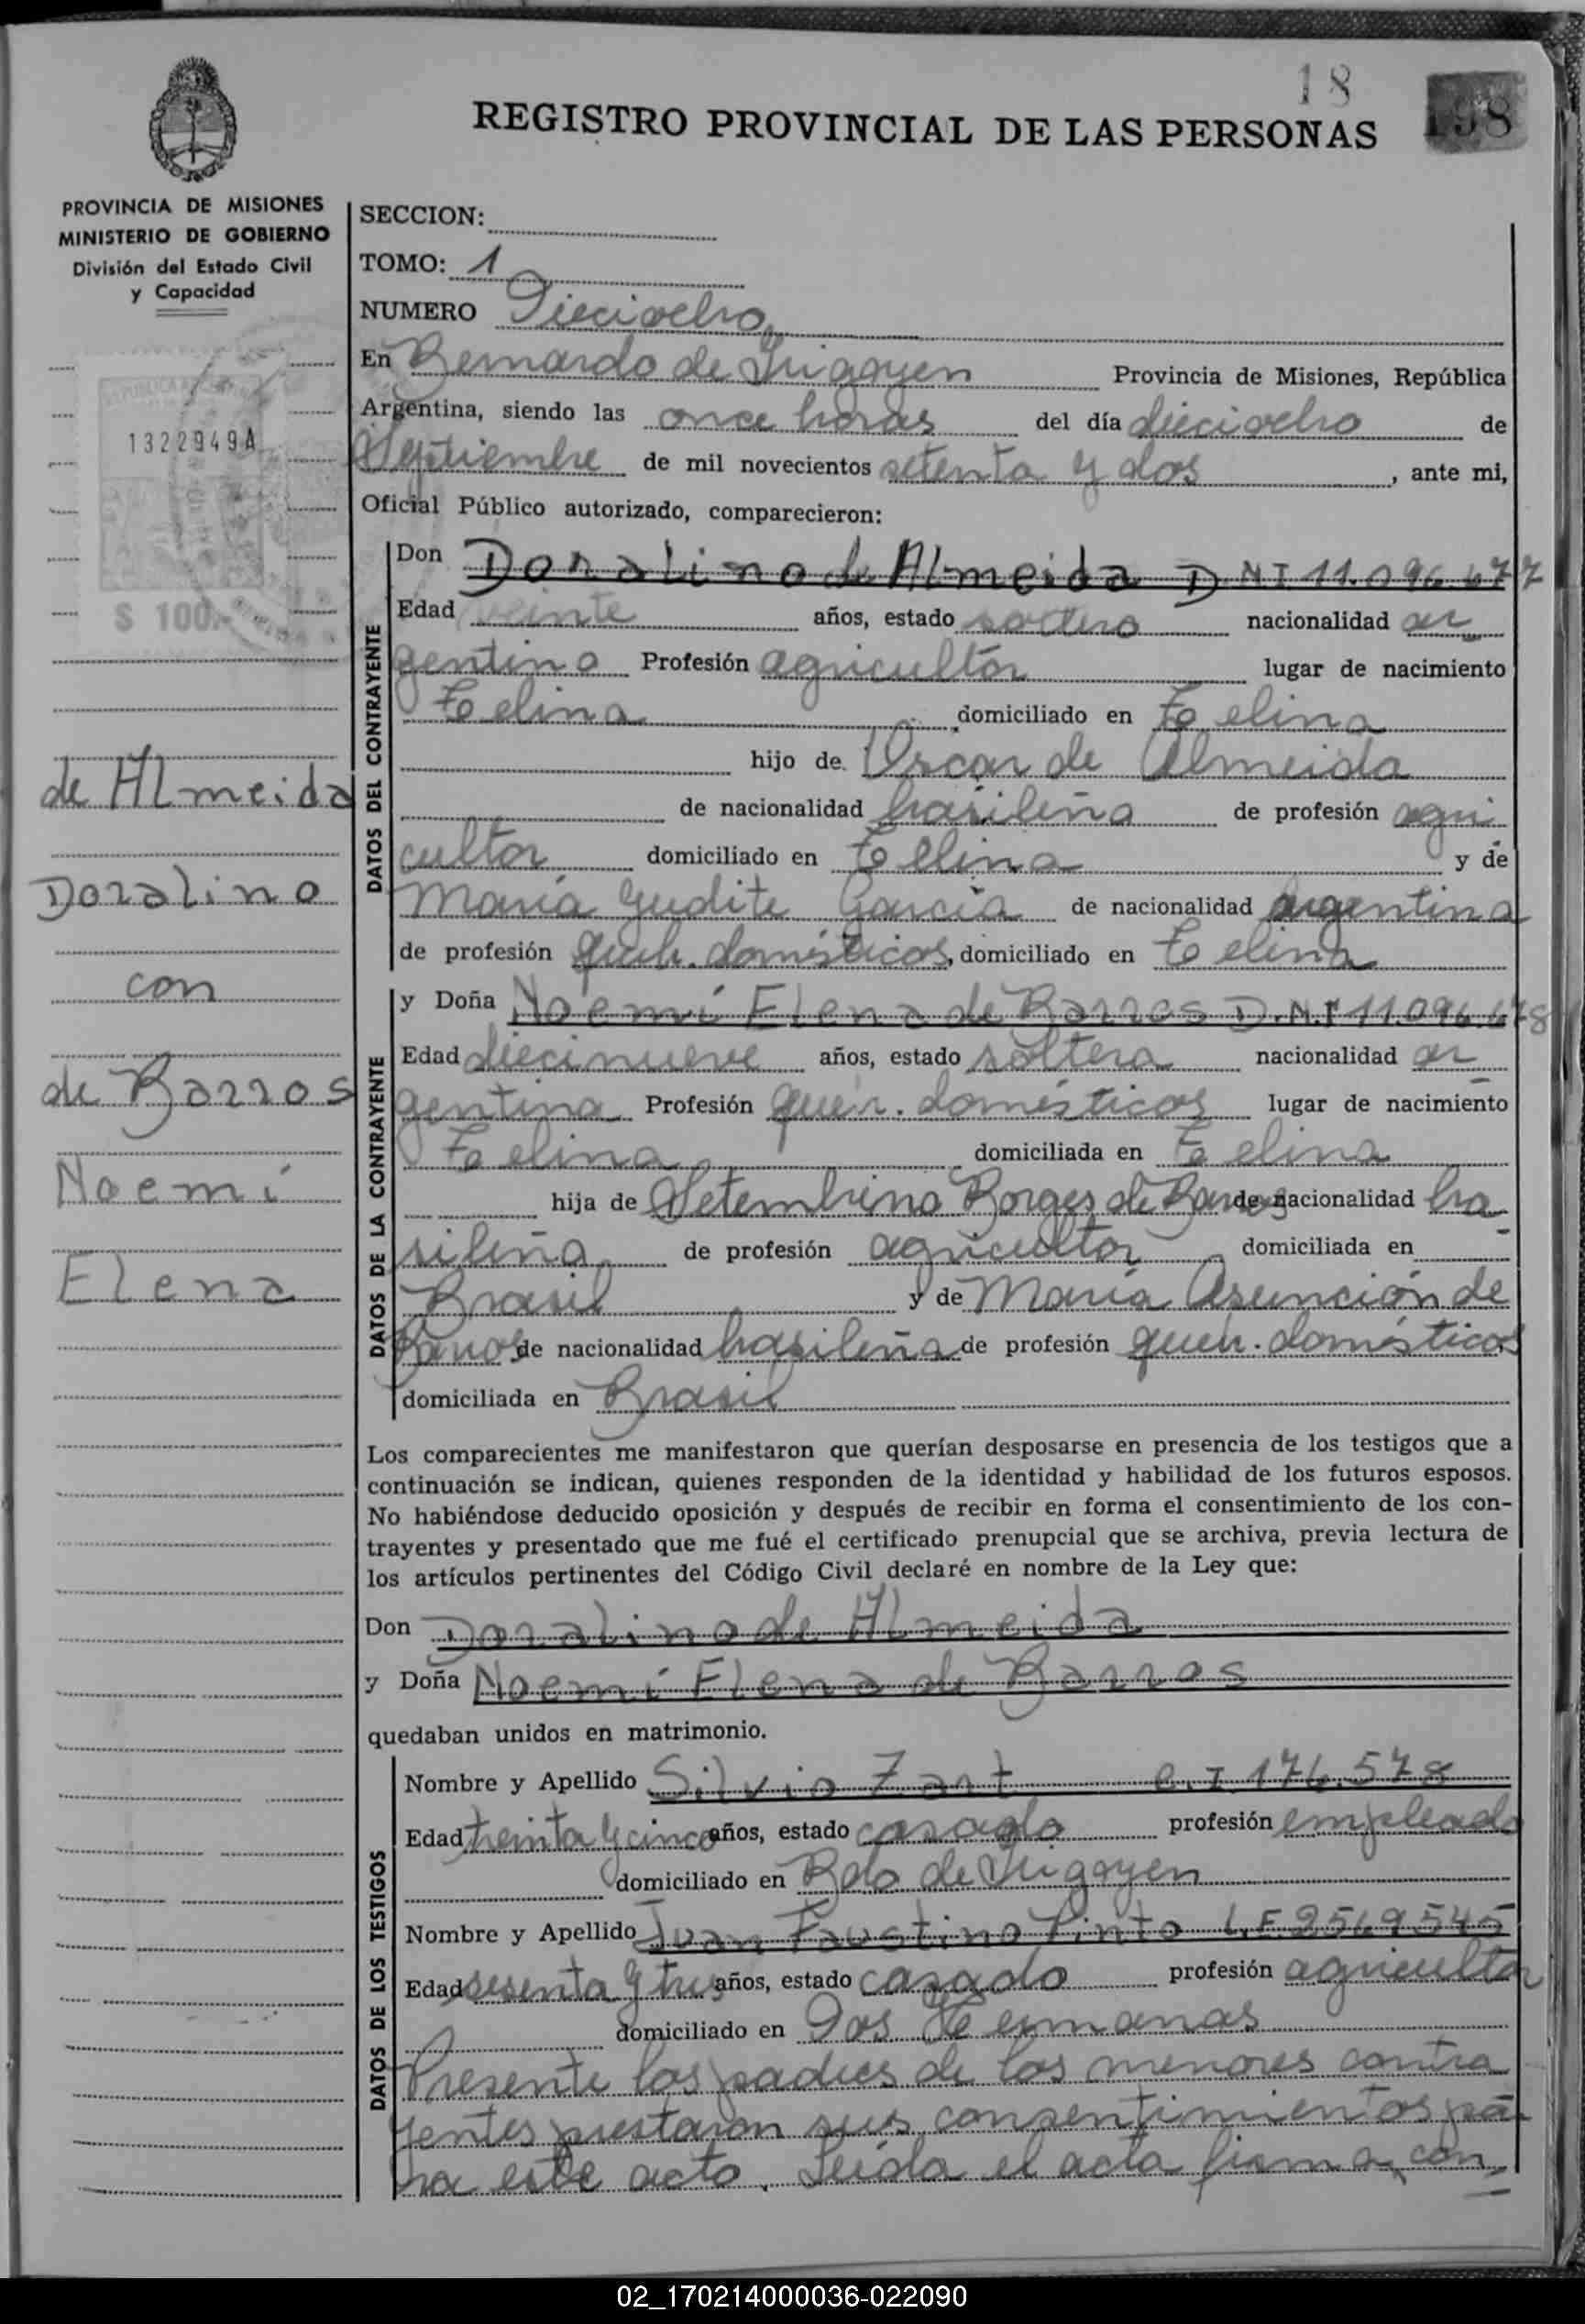 18
198
REGISTRO PROVINCIAL DE LAS PERSONAS
PROVINCIA DE MISIONES
MINISTERIO DE GOBIERNO
División del Estado Civil
y Capacidad
1322949A
$ 100.-
de Almeida
Doralino
con
de Barros
Noemí
Elena
SECCION:
TOMO: 1
NUMERO Dieciocho
En Bernardo de Irigoyen Provincia de Misiones, República
Argentina, siendo las once horas del día dieciocho de
Septiembre de mil novecientos setenta y dos, ante mi,
Oficial Público autorizado, comparecieron:
DATOS DEL CONTRAYENTE
Don Doralino de Almeida D.N.I 11.096.677
Edad veinte años, estado soltero nacionalidad ar
gentino Profesión agricultor lugar de nacimiento
Tº elina domiciliado en Tº elina
hijo de Oscar de Almeida
de nacionalidad brasileña de profesión agri
cultor domiciliado en y de
María Yudite García de nacionalidad argentina
de profesión queh. domésticos, domiciliado en
DATOS DE LA CONTRAYENTE
y Doña Noemí Elena de Barros D.N.I 11.096.678
Edad diecinueve años, estado soltera nacionalidad ar
gentina Profesión queh. domésticos lugar de nacimiento
domiciliada en
hija de Setembrino Borges de Barros de nacionalidad bra
sileña de profesión agricultor domiciliada en
Brasil y de María Asunción de
Barros de nacionalidad brasileña de profesión queh. domésticos
domiciliada en Brasil
Los comparecientes me manifestaron que querían desposarse en presencia de los testigos que a
continuación se indican, quienes responden de la identidad y habilidad de los futuros esposos.
No habiéndose deducido oposición y después de recibir en forma el consentimiento de los con-
trayentes y presentado que me fué el certificado prenupcial que se archiva, previa lectura de
los artículos pertinentes del Código Civil declaré en nombre de la Ley que:
Don Doralino de Almeida
y Doña Noemí Elena de Barros
quedaban unidos en matrimonio.
DATOS DE LOS TESTIGOS
Nombre y Apellido Silvio Zart C.I 176.578
Edad treinta y cinco años, estado casado profesión empleado
domiciliado en Bdo de Irigoyen
Nombre y Apellido Juan Faustino Pinto L.E 2569545
Edad sesenta y tres años, estado casado profesión agricultor
domiciliado en Dos Hermanas
Presente los padres de los menores contra
yentes prestaron sus consentimientos pa
ra este acto. Leída el acta firma, con
02_170214000036-022090